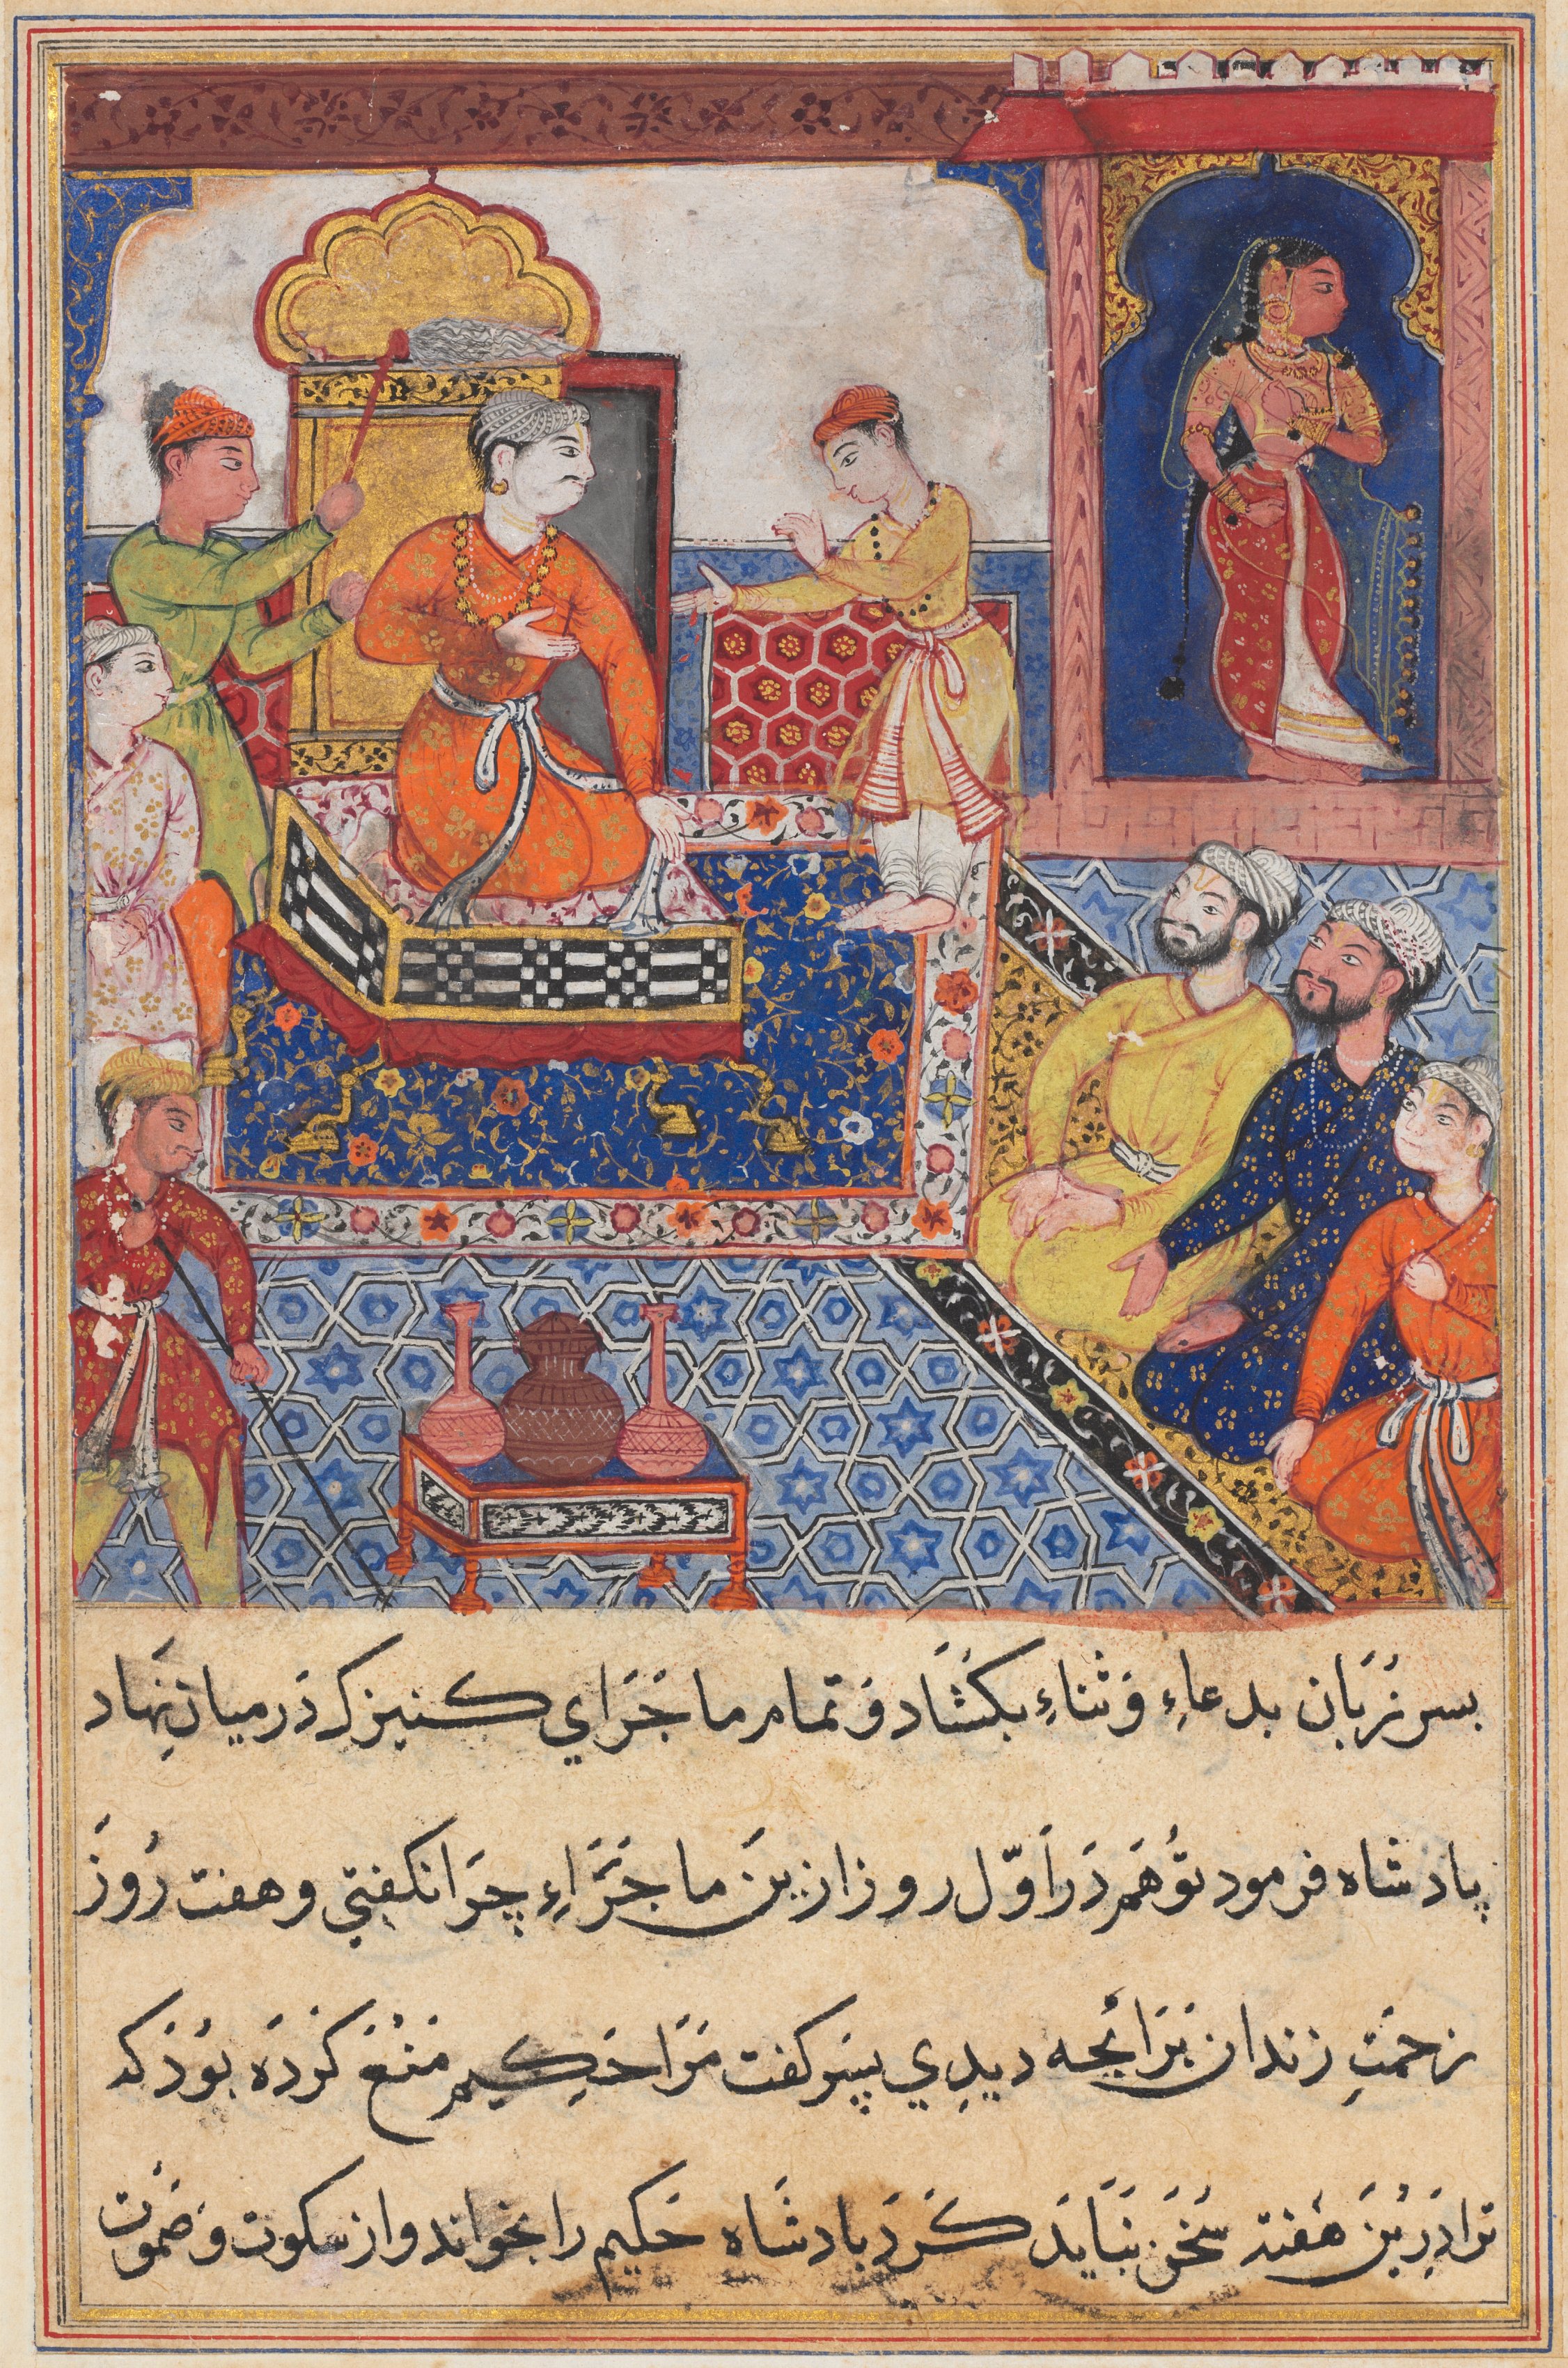 پسر زَبان بدعاءِ وَ ثناءِ بکشَاد وَ تمام ماجَرَاي کنیزک دَرمیان نِهاد
پادشاه فرمود تُو هَم دَر اَوّل روز ازین ماجَرَاءِ چرَا نکفتي و هفت رُوزَ
زحمَتِ زندان بَرَاءِ چه دیدِي پسَر کفت مَرَا حَکِیم مَنْعْ کَردَه بُوذ که
ترا دَرِین هَفته سُخَن نبَایَد کَردَ پادشَاه حَکیم را بخواند و از سکوت وَ صَمُوت